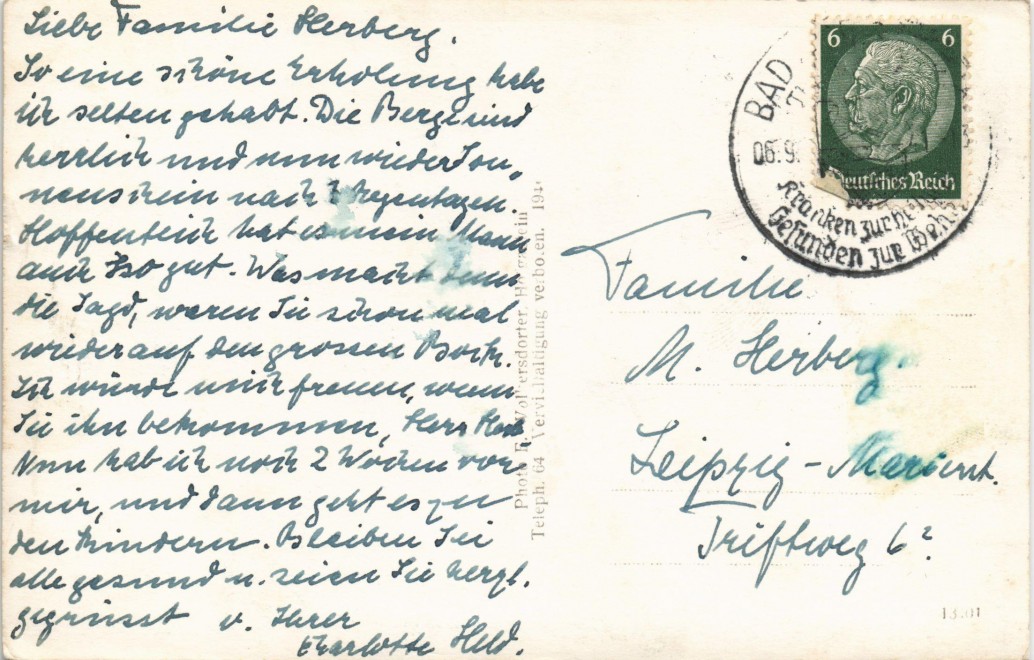 Liebe Familie Herberg.
So eine schöne Erholung habe
ich selten gehabt. Die Berge sind
herrlich und nun wieder Son„
nenschein nach Regentagen.
Hoffentlich hat es mein Mann
auch so gut. Was macht denn
die Jagd, waren Sie schon mal
wieder auf den grossen Bock.
Ich würde mich freuen, wenn
Sie ihn bekommen, Herr
Nun hab ich noch 2 Wochen vor
mir, und dann geht es zu
den Kindern. Bleiben Sie
alle gesund u. seien Sie herzl.
gegrüsst v. Ihrer
Charlotte Held.
Photo
Teleph. 64 Vervielfältigung verboten. 194
6 6
Deutsches Reich
BAD
06.9.
Kranken zur
Gesunden zur
Familie
M. Herberg.
Leipzig - Marienst.
Triftweg 6²
13101